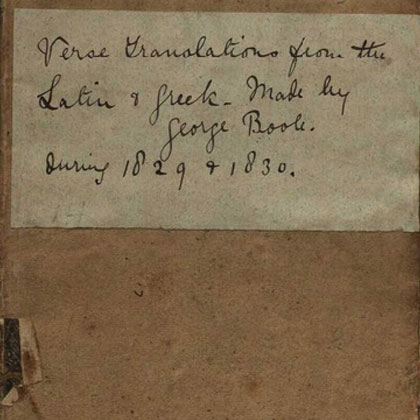 Verse Translations from the
Latin & Greek - Made by
George Boole.
during 1829 & 1830.